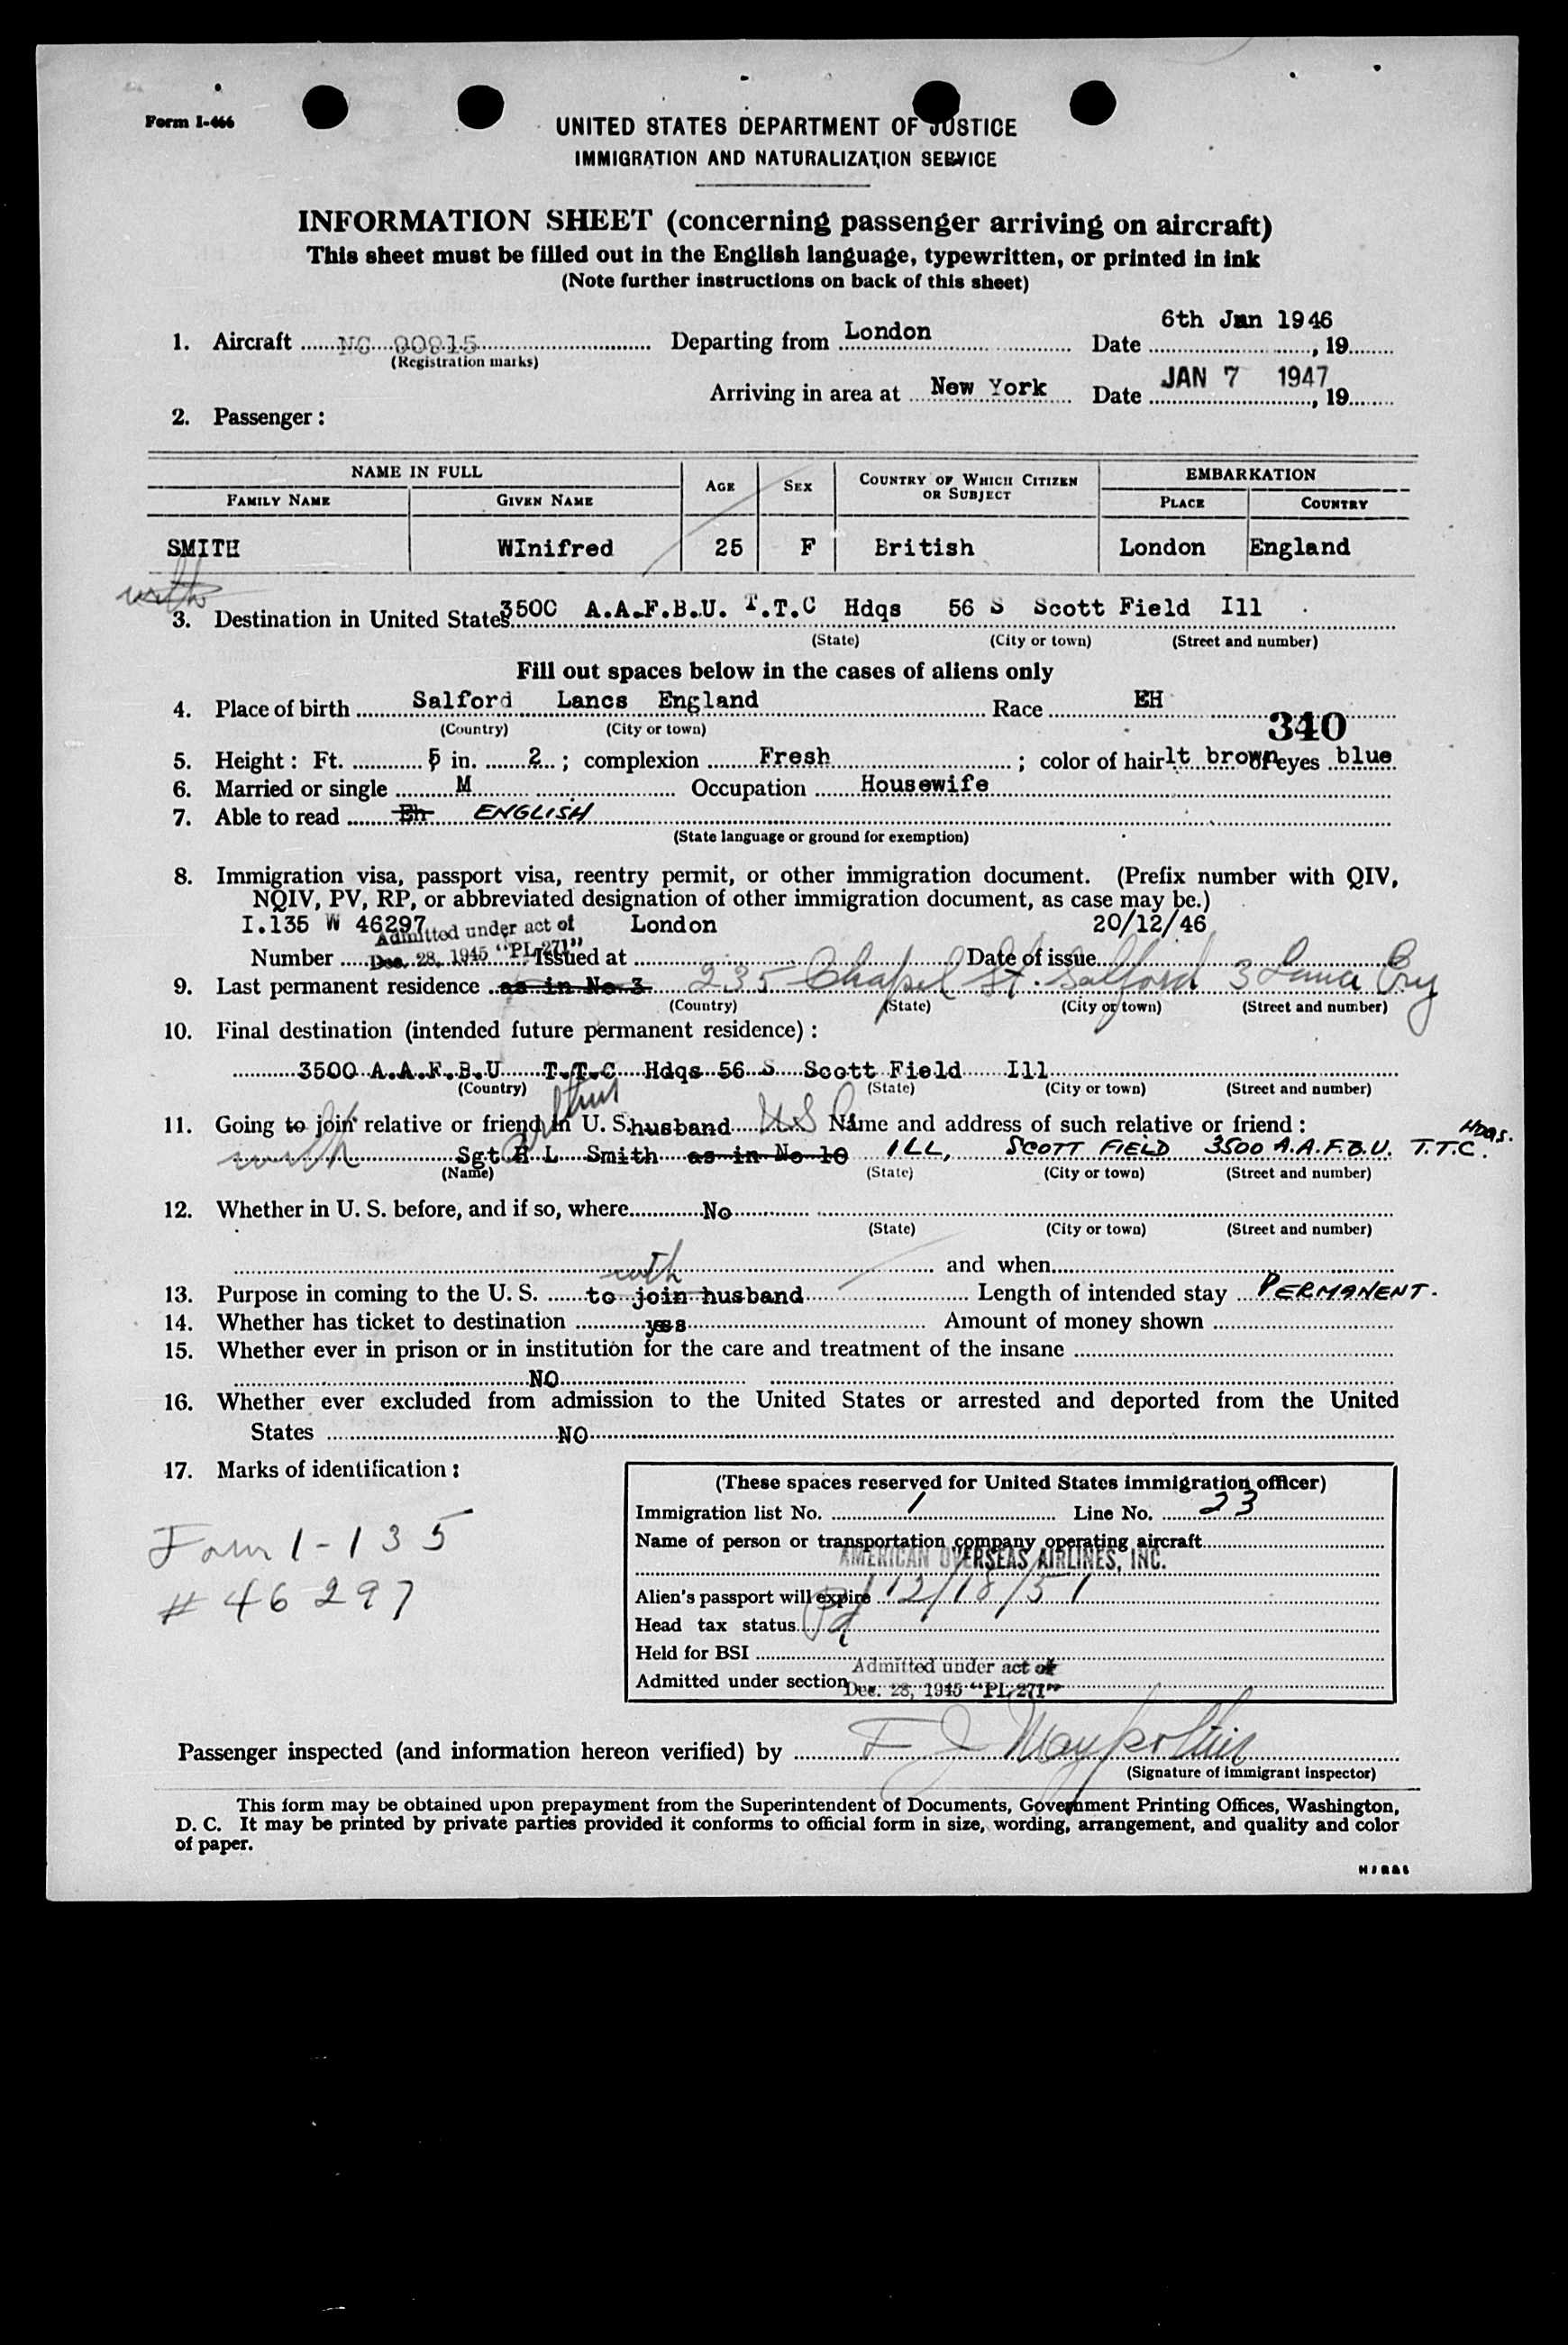 Form I-466
UNITED STATES DEPARTMENT OF JUSTICE
IMMIGRATION AND NATURALIZATION SERVICE
INFORMATION SHEET (concerning passenger arriving on aircraft)
This sheet must be filled out in the English language, typewritten, or printed in ink
(Note further instructions on back of this sheet)
6th Jan 1946
1. Aircraft NC 90915 Departing from London Date , 19
(Registration marks)
Arriving in area at New York Date JAN 7 1947, 19
2. Passenger :
NAME IN FULL AGE SEX COUNTRY OF WHICH CITIZEN OR SUBJECT EMBARKATION
FAMILY NAME GIVEN NAME PLACE COUNTRY
SMITH WInifred 25 F British London England
with
3. Destination in United States 3500 A.A.F.B.U. T.T.C Hdqs 56 S Scott Field Ill
(State) (City or town) (Street and number)
Fill out spaces below in the cases of aliens only
4. Place of birth Salford Lancs England Race EH
(Country) (City or town)
340
5. Height : Ft. 5 in. 2 ; complexion Fresh ; color of hair lt brown of eyes blue
6. Married or single M Occupation Housewife
7. Able to read Eh ENGLISH
(State language or ground for exemption)
8. Immigration visa, passport visa, reentry permit, or other immigration document. (Prefix number with QIV,
NQIV, PV, RP, or abbreviated designation of other immigration document, as case may be.)
I.135 W 46297 London 20/12/46
Admitted under act of
Dec. 28, 1945 "PL 271"
Number Issued at Date of issue
9. Last permanent residence as in No 3 235 Chapel St. Salford 3 Lancs
(Country) (State) (City or town) (Street and number)
10. Final destination (intended future permanent residence) :
3500 A.A.F.B.U T.T.C Hdqs 56 S Scott Field Ill
(Country) (State) (City or town) (Street and number)
11. Going to join relative or friend in U. S. husband US Name and address of such relative or friend :
with Sgt A L Smith as in No 10 ILL, SCOTT FIELD 3500 A.A.F.B.U. T.T.C. HDQS.
Arthur
(Name) (State) (City or town) (Street and number)
12. Whether in U. S. before, and if so, where No
(State) (City or town) (Street and number)
and when
with
13. Purpose in coming to the U. S. to join husband Length of intended stay PERMANENT.
14. Whether has ticket to destination yes Amount of money shown
15. Whether ever in prison or in institution for the care and treatment of the insane
NO
16. Whether ever excluded from admission to the United States or arrested and deported from the United
States NO
17. Marks of identification :
Form 1-135
# 46297
(These spaces reserved for United States immigration officer)
Immigration list No. 1 Line No. 23
Name of person or transportation company operating aircraft
AMERICAN OVERSEAS AIRLINES, INC.
Alien's passport will expire 12/18/51
Head tax status Pd
Held for BSI
Admitted under section Admitted under act of
Dec. 28, 1945 "PL 271"
Passenger inspected (and information hereon verified) by
(Signature of immigrant inspector)
This form may be obtained upon prepayment from the Superintendent of Documents, Government Printing Offices, Washington,
D. C. It may be printed by private parties provided it conforms to official form in size, wording, arrangement, and quality and color
of paper.